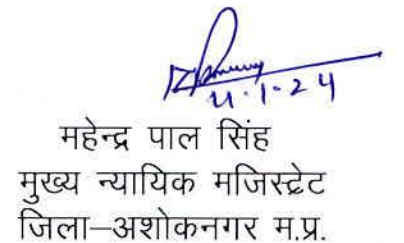 11.1.24
महेन्द्र पाल सिंह
मुख्य न्यायिक मजिस्ट्रेट
जिला–अशोकनगर म.प्र.